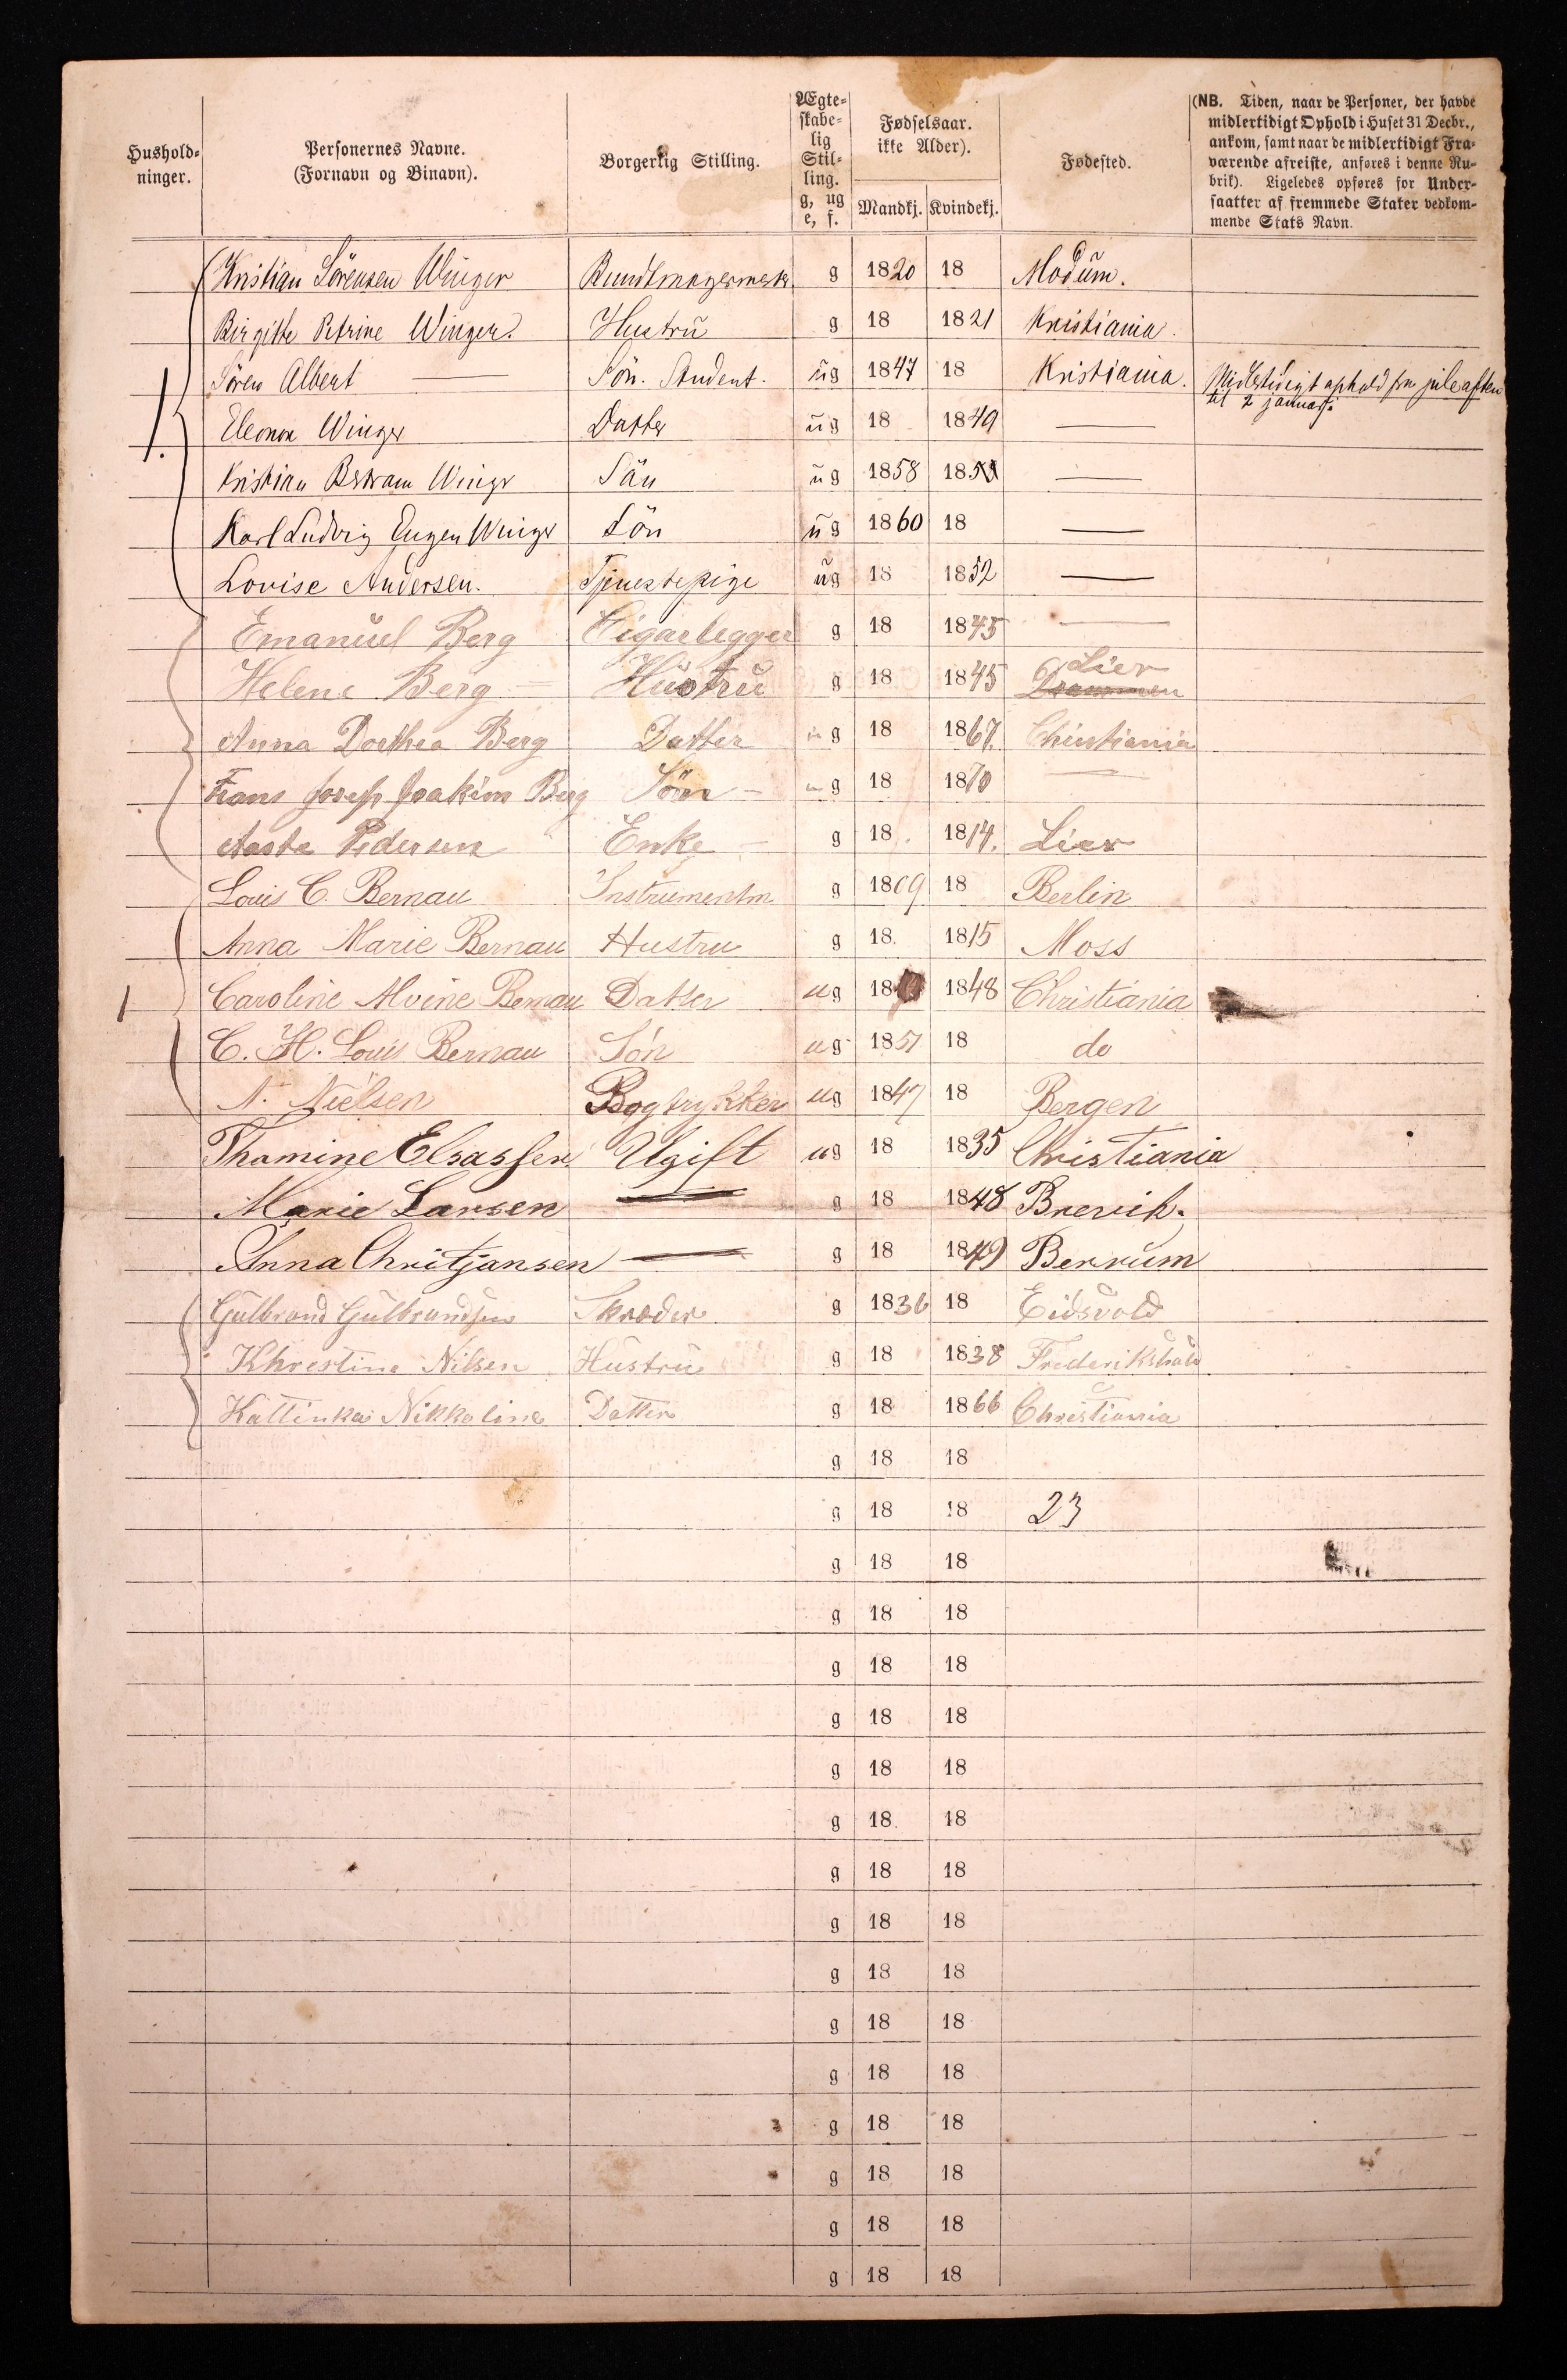 Hushold-
ninger.
Personernes Navne.
(Fornavn og Binavn).
Borgerlig Stilling.
Ægte-
skabe-
lig
Stil-
ling.
g, ug
e, f.
Fødselsaar.
ikke Alder).
Mandkj. Kvindekj.
Fødested.
(NB. Tiden, naar de Personer, der havde
midlertidigt Ophold i Huset 31 Decbr.,
ankom, samt naar de midlertidigt Fra-
værende afreiste, anføres i denne Ru-
brik). Ligeledes opføres for Under-
saatter af fremmede Stater vedkom-
mende Stats Navn.
Kristian Sörensen Winger Bundtmagermest. g 1820 18 Modum.
Birgitte Petrine Winger. Hustru g 18 1821 Kristiania.
1. Sören Albert — Sön. Student. ug 1847 18 Kristiania. Midlertidigt ophold fra juleaften
til 2 januar.
Eleonora Winger Datter ug 18 1849 —
Kristian Bertram Winger Sön ug 1858 18 —
Karl Ludvig Eugen Winger Sön ug 1860 18 —
Lovise Andersen. Tjenestepige ug 18 1852 —
Emanuel Berg Cigarlegger g 18 1845 —
Helene Berg — Hustru g 18 1845 Lier Drammen
Anna Dorthea Berg Datter ug 18 1867. Christiania
Frans Josef Joakim Berg Sön – ug 18 1870 —
Aaste Pedersen Enke — g 18 1814. Lier
Louis C. Bernau Instrumentm g 1809 18 Berlin
Anna Marie Bernau Hustru g 18 1815 Moss
1 Caroline Alvine Bernau Datter ug 18 1848 Christiania
C. H. Louis Bernau Sön ug 1851 18 do
N. Nielsen Bogtrykker ug 1847 18 Bergen
Thamine Elsassen Ugift ug 18 1835 Christiania
Marie Larsen — g 18 1848 Brevik.
Anna Christjansen — g 18 1849 Berrum
Gulbrand Gulbrandsen Skræder g 1836 18 Eidsvold
Khrestine Nilsen Hustru g 18 1838 Frederikshald
Kattinka Nikkoline Datter g 18 1866 Christiania
g 18 18
g 18 18 23
g 18 18
g 18 18
g 18 18
g 18 18
g 18 18
g 18 18
g 18 18
g 18 18
g 18 18
g 18 18
g 18 18
g 18 18
g 18 18
g 18 18
g 18 18